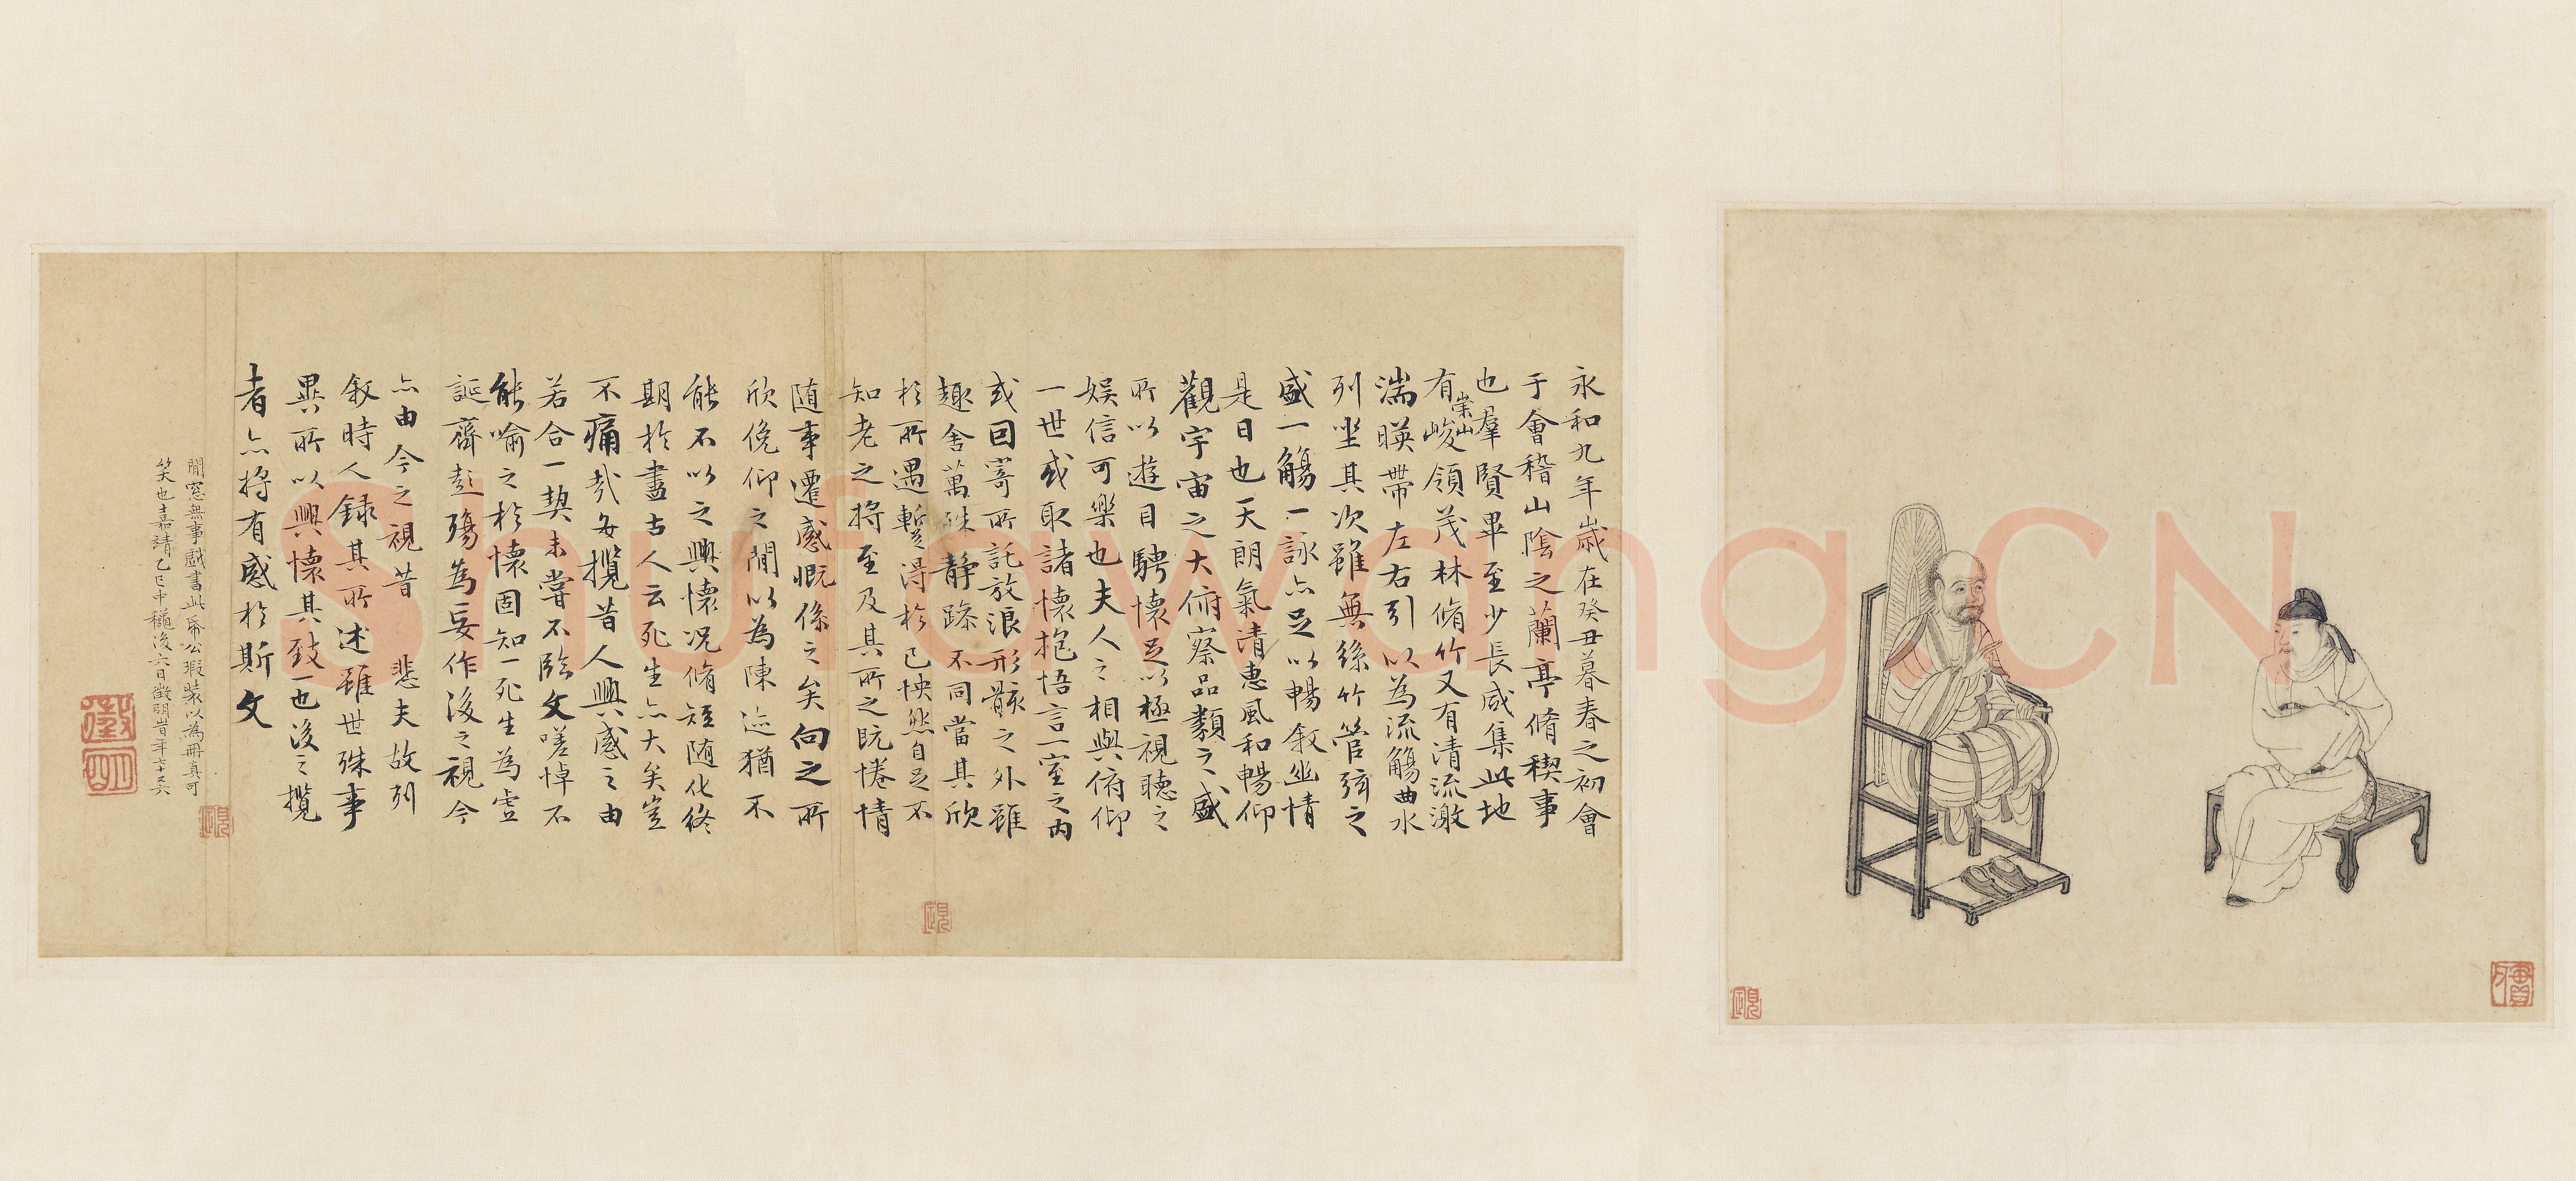 永和九年歲在癸丑暮春之初會
于會稽山陰之蘭亭脩稧事
也羣賢畢至少長咸集此地
有崇山峻領茂林脩竹又有清流激
湍暎帶左右引以為流觴曲水
列坐其次雖無絲竹管弦之
盛一觴一詠亦足以暢敘幽情
是日也天朗氣清惠風和暢仰
觀宇宙之大俯察品類之盛
所以遊目騁懷足以極視聽之
娛信可樂也夫人之相與俯仰
一世或取諸懷抱悟言一室之內
或因寄所託放浪形骸之外雖
趣舍萬殊靜躁不同當其欣
於所遇暫得於己怏然自足不
知老之將至及其所之既惓情
随事遷感慨係之矣向之所
欣俛仰之閒以為陳迹猶不
能不以之興懷況脩短随化終
期於盡古人云死生亦大矣豈
不痛哉每攬昔人興感之由
若合一契未嘗不臨文嗟悼不
能喻之於懷固知一死生為虛
誕齊彭殤為妄作後之視今
亦由今之視昔 悲夫故列
敘時人錄其所述雖世殊事
異所以興懷其致一也後之攬
者亦將有感於斯文
閒窓無事戲書此帋公瑕裝以為冊真可
笑也嘉靖乙巳中穐後六日徵明旹年七十又六
徵明
Shufawang.CN